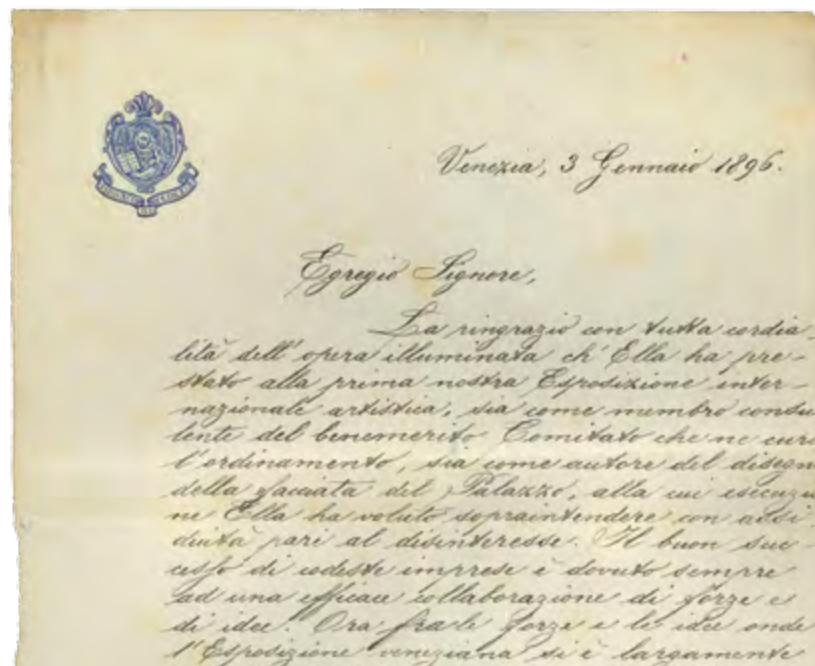 Venezia, 3 Gennaio 1896.
Egregio Signore,
La ringrazio con tutta cordia-
lità dell'opera illuminata ch'Ella ha pre-
stato alla prima nostra Esposizione inter-
nazionale artistica, sia come membro consu
lente del benemerito Comitato che ne curò
l'ordinamento, sia come autore del disegn
della facciata del Palazzo, alla cui esecuzio
ne Ella ha voluto sopraintendere con assi
duità pari al disinteresse. Il buon suc-
cesso di codeste imprese è dovuto sempre
ad una efficace collaborazione di forze e
di idee. Ora fra le forze e le idee onde
l'Esposizione veneziana si è largamente